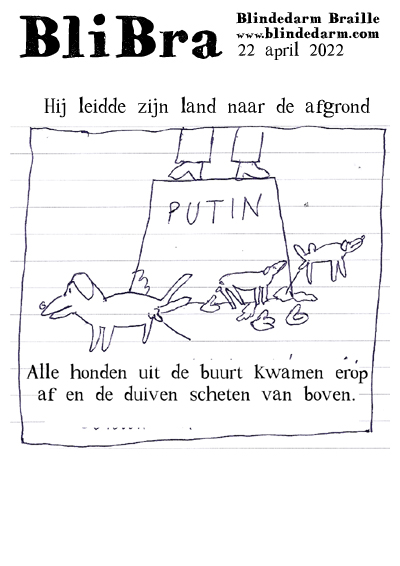 BliBra
Blindedarm Braille
www.blindedarm.com
22 april 2022
Hij leidde zijn land naar de afgrond
PUTIN
Alle honden uit de buurt kwamen erop
af en de duiven scheten van boven.